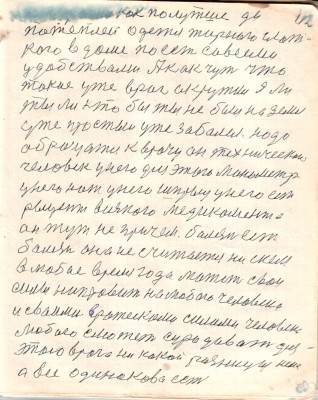 как получше да
потеплей одети жирного слат-
кого в доме посст савсеми
удобствами А как чут что
такие уже враг скрутил Я ли
ты ли кто бы ты не был на земи
уже простыл уже забалил. надо
обращати к врачу он технически
человек у него для этого манометр
у него нот у него шприц у него ест
рецепт всякого медикамента
он тут не причем. балезн ест
балезн она не считается ни с кем
в любое время года может свои
силы направит на любого человека
и своими вражескими силами человека
любого сможет
этого врага ни какой разницы нет
а все одинакова ест